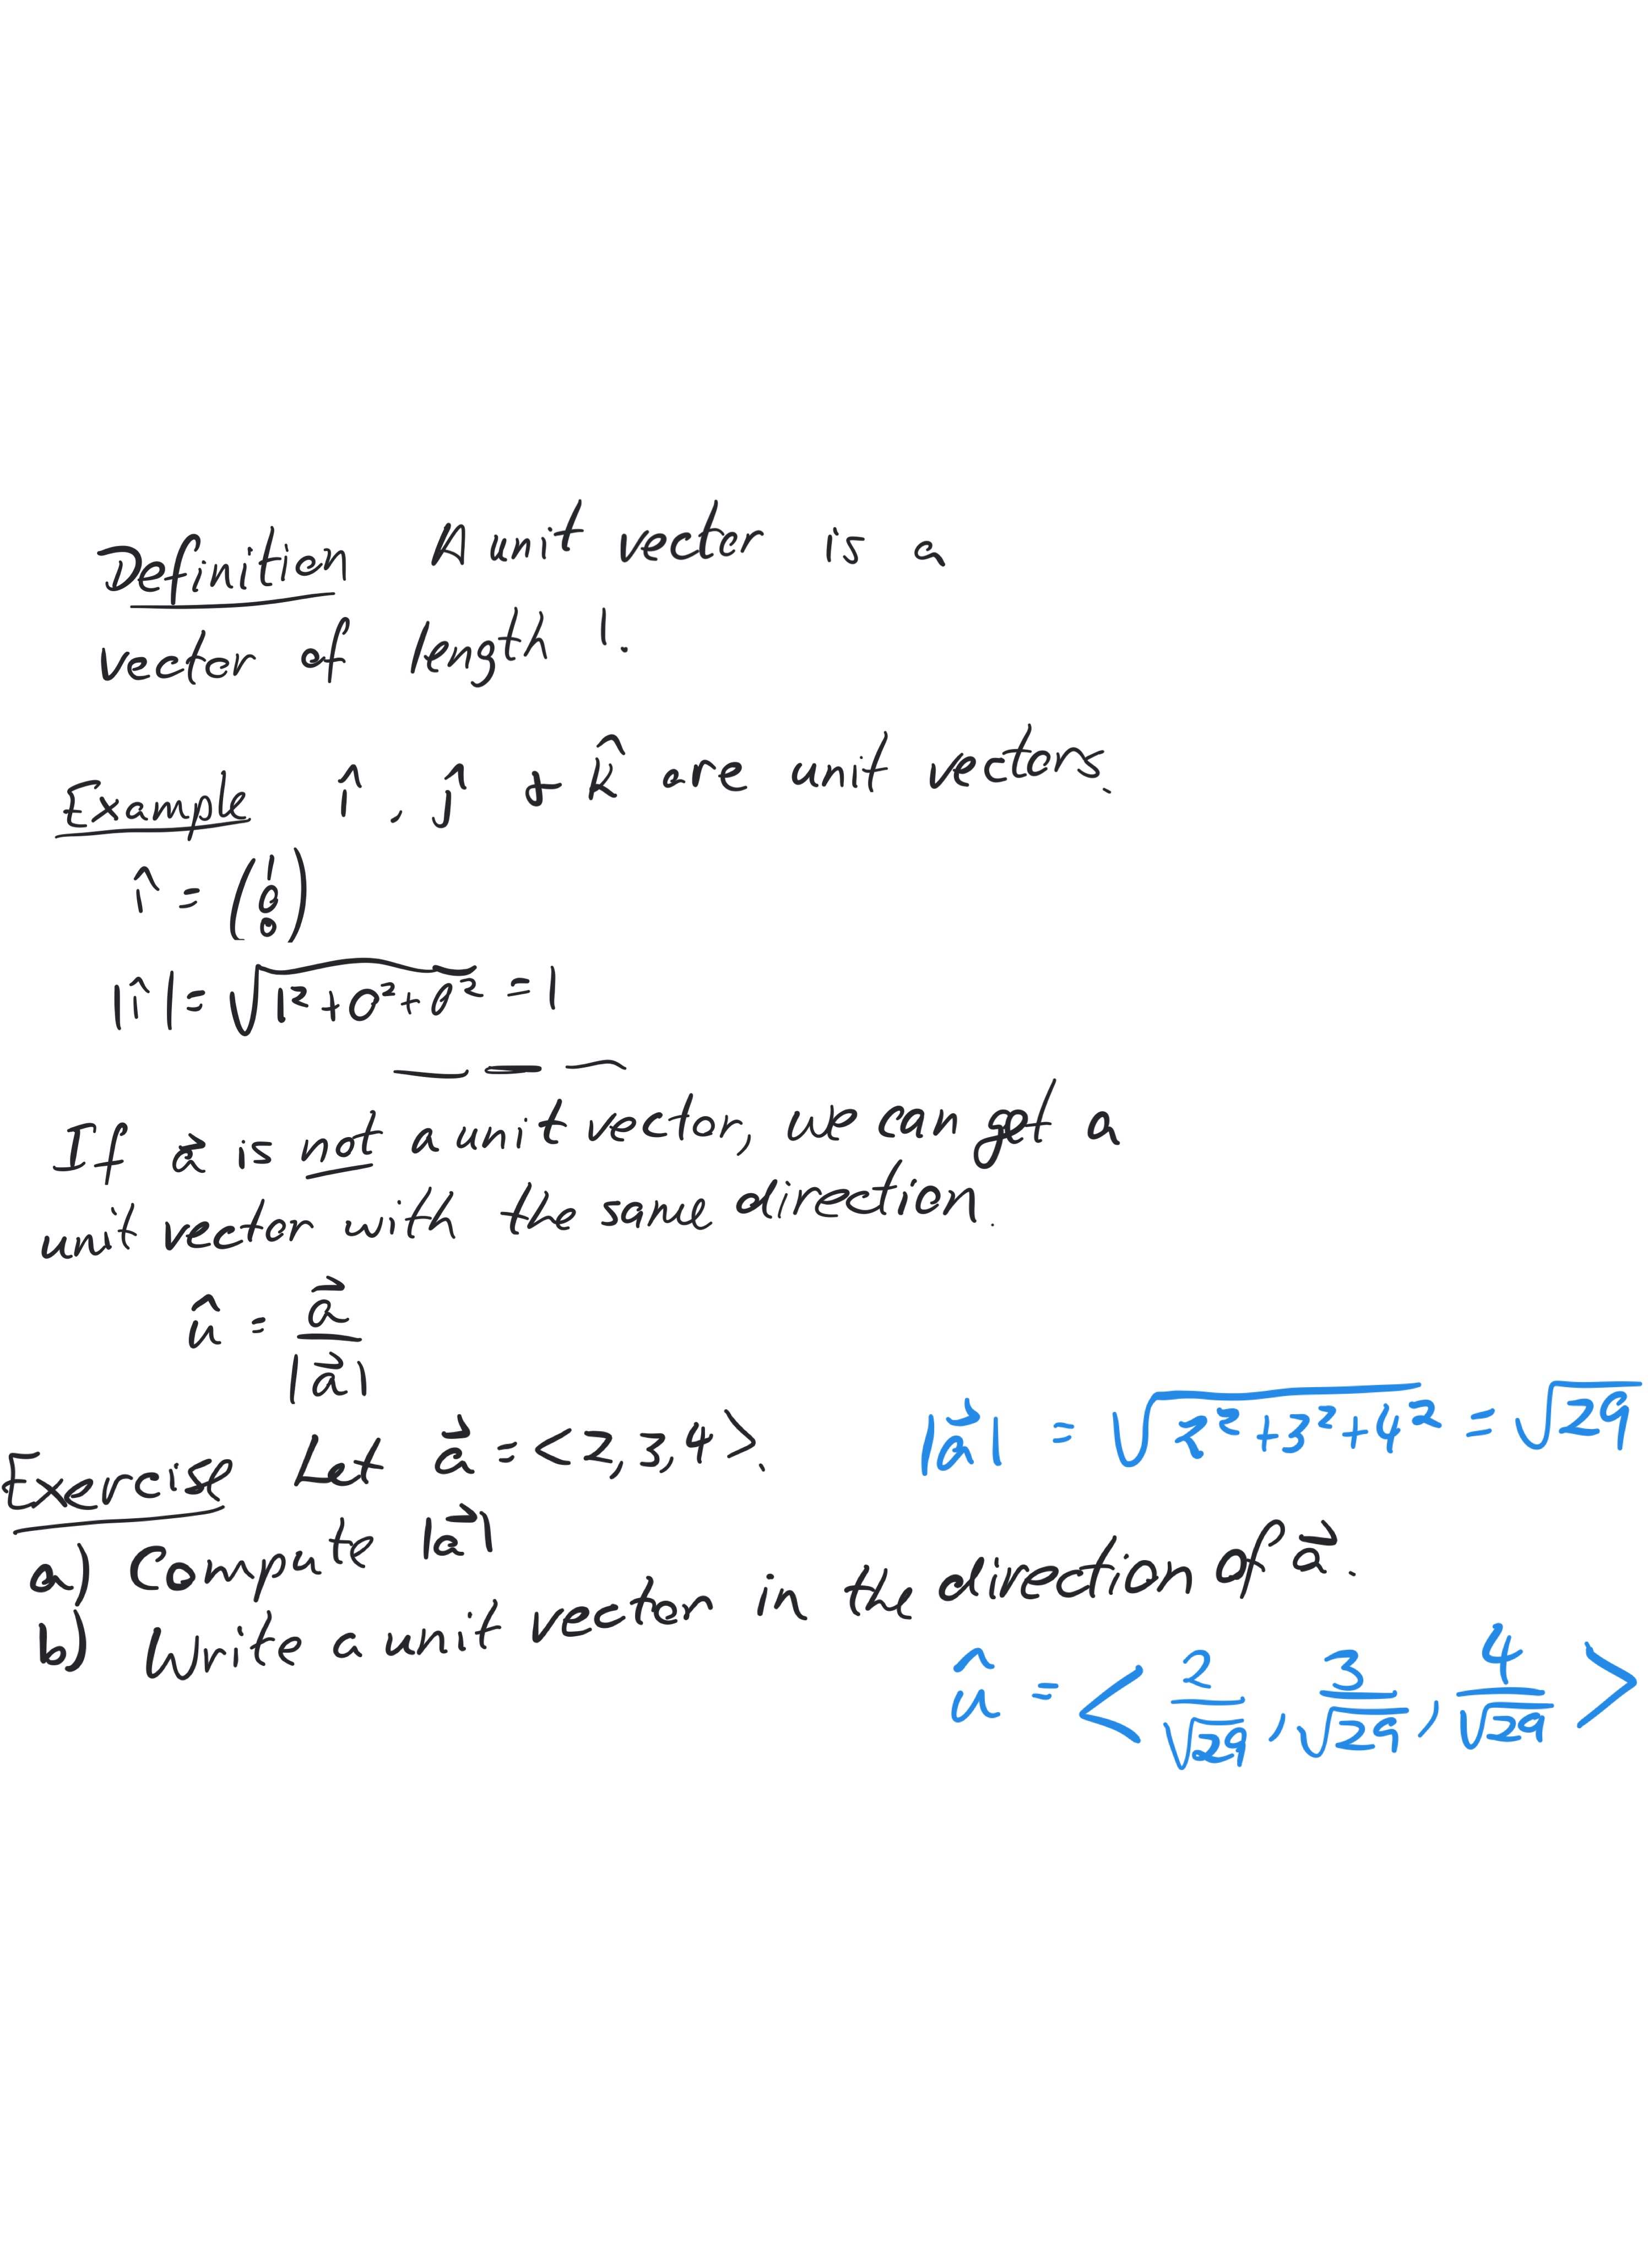 Definition A unit vector is a
vector of length 1.
Example î , ĵ & k̂ are unit vectors.
î = (1 0 0)
|î| = √(1² + 0² + 0²) = 1
If a⃗ is not a unit vector, we can get a
unit vector with the same direction.
û = a⃗ / |a⃗|
Exercise Let a⃗ = <2, 3, 4>.
|a⃗| = √(2² + 3² + 4²) = √29
a) Compute |a⃗|
b) Write a unit vector in the direction of a⃗.
û = < 2/√29 , 3/√29 , 4/√29 >